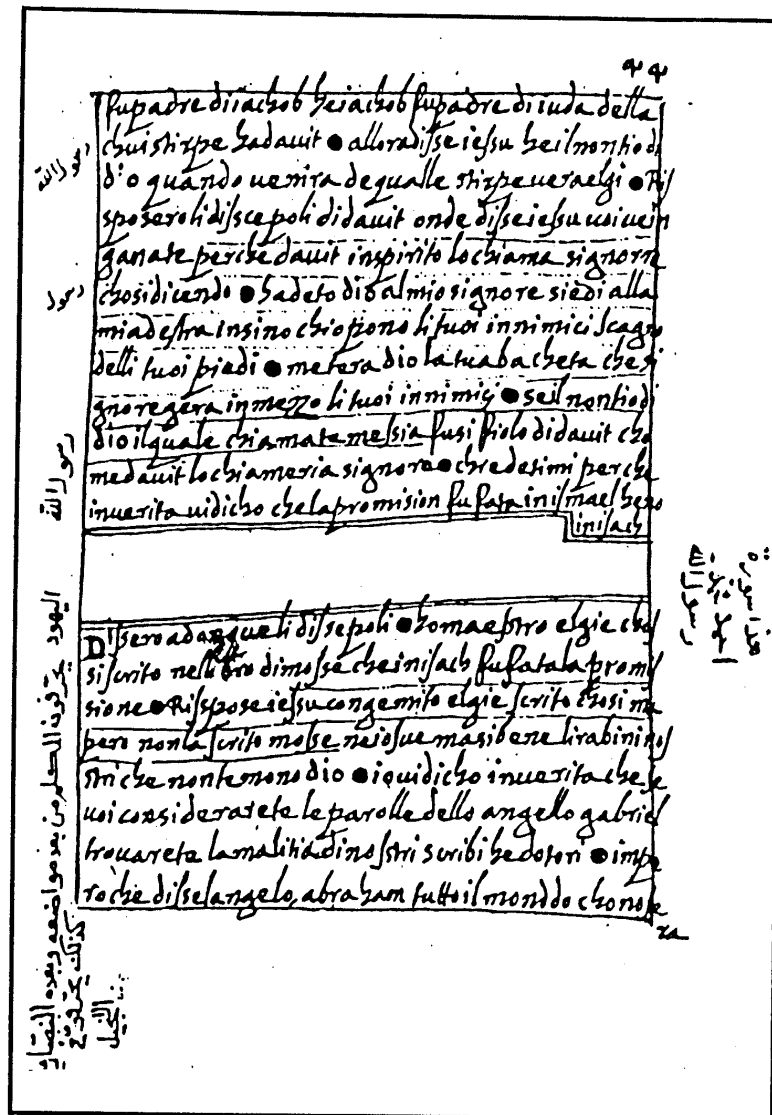 ٤٤
fu padre di iachob he iachob fu padre di iuda della
chui stirpe ha dauit ● allora disse iessu he il nontio di
d'o quando uenira de qualle stirpe uera elgi ● Ris
sposero li discepoli di dauit onde disse iessu uoi ue in
ganate perche dauit in spirito lo chiama signorre
chosi dicendo ● ha deto dio al mio signore siedi alla
mia destra insino chio pono li tuoi innimici scagno
delli tuoi piedi ● metera dio la tua bacheta che si
gnoregera in mezzo li tuoi innimicj ● se il nontio di
dio il quale chiamate messia fusi fiolo di dauit cho
me dauit lo chiameria signore ● chredetimi perche
in uerita ui dicho che la promision fu fata in ismael he no
in isach
رسول الله
رسول
رسول الله
Dissero adonque li dissepoli ● ho maestro elgie chos
si scrito nel libro di mosse che in isach fu fata la promis
sione ● Rispose iessu con gemito elgie scrito chosi ma
pero non la scrito mosse ne iosue ma si bene li rabini nos
stri che non temono dio ● io ui dicho in uerita che se
uoi considerarete le parolle dello angelo gabriel
trouarete la malitia di nostri scribi he dotori ● impe
ro che disse l angelo, abraham tutto il monddo chonose
ra
هذا سورة
رسول الله
اليهود يحرفون الكلم من بعد مواضعه وبعده النصارى
كذلك يحرفون
الانجيل